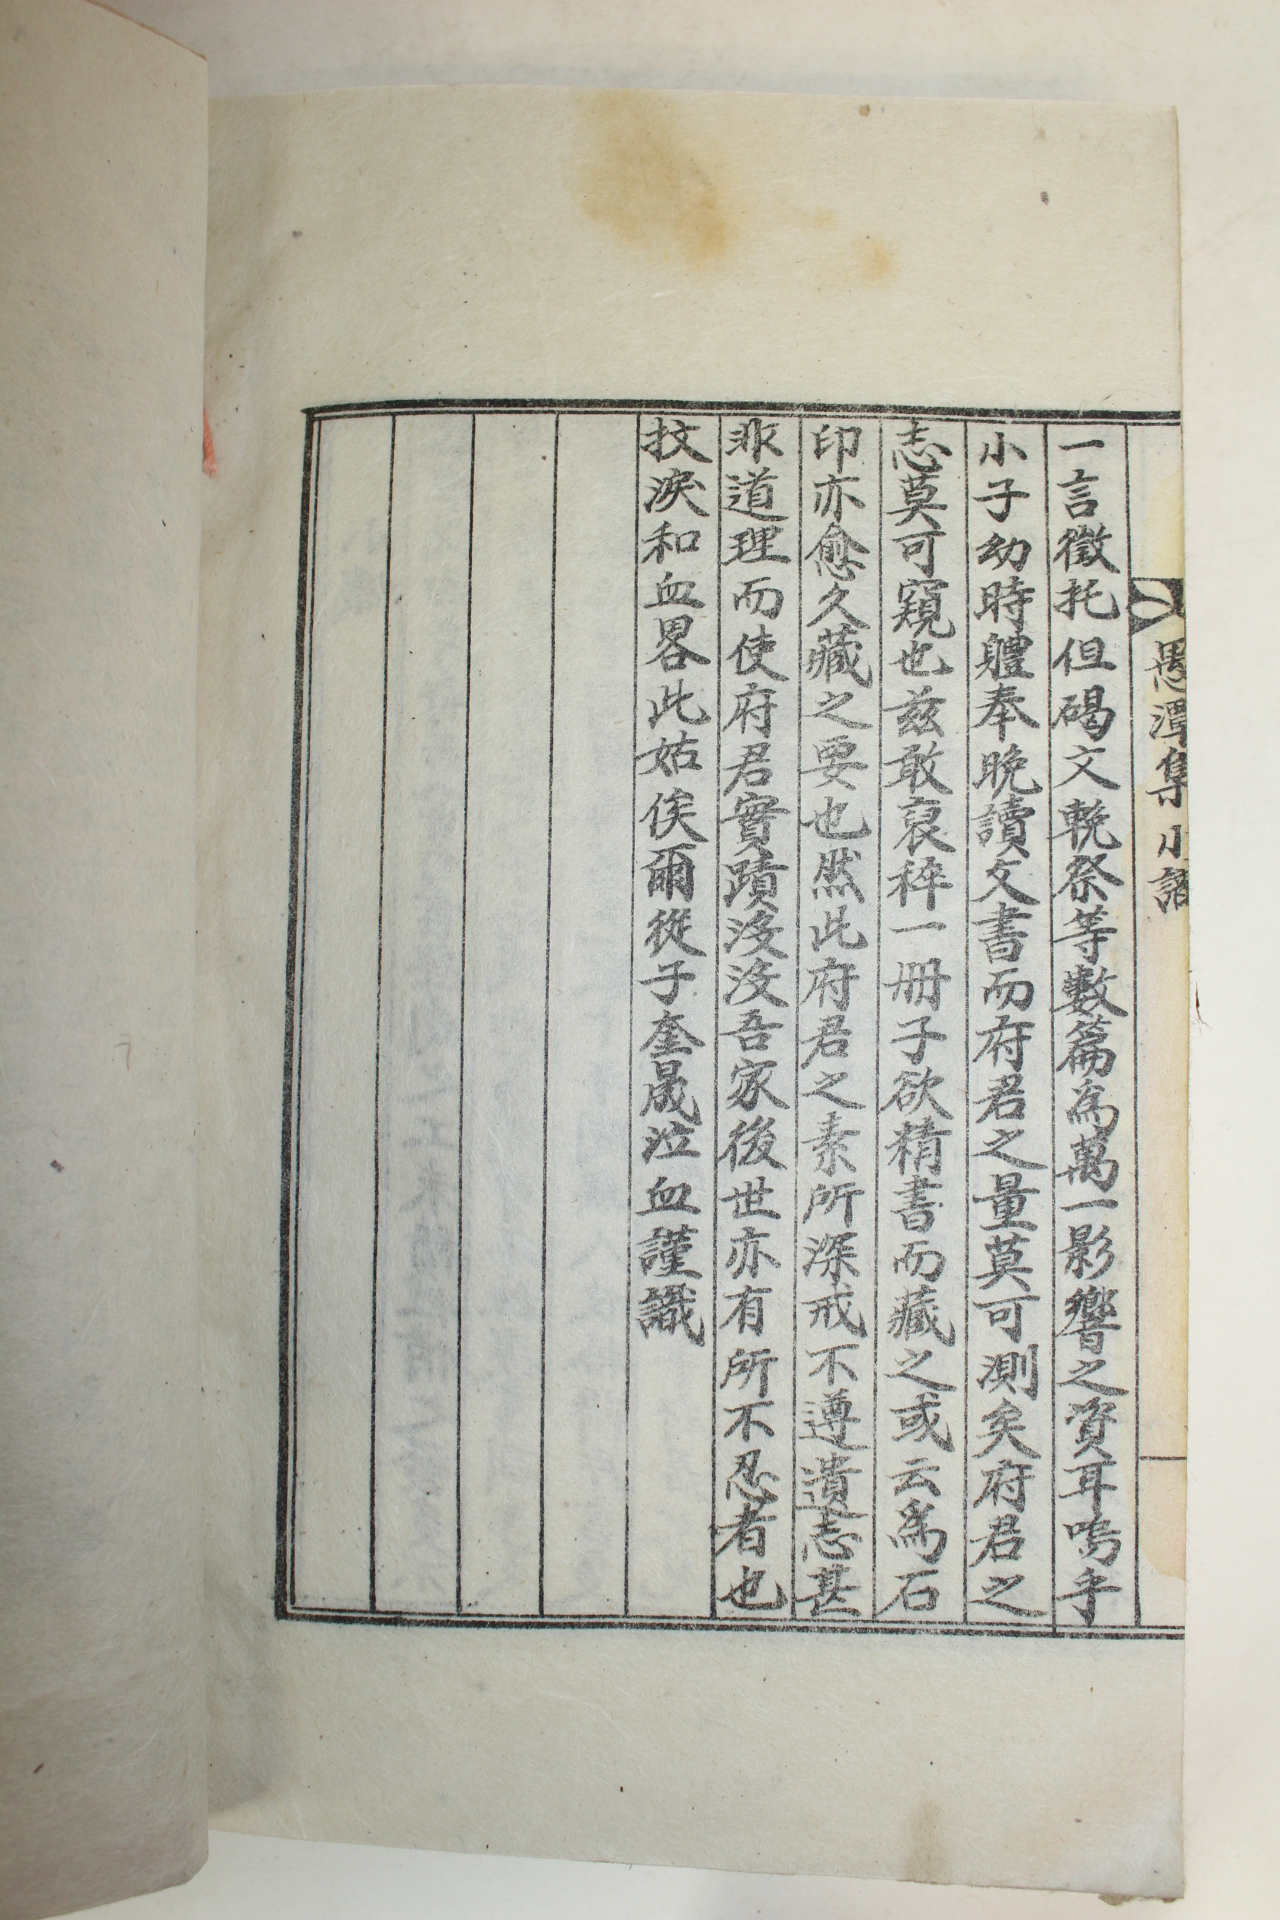 愚潭集 小識
一言徵托但碣文輓祭等數篇為萬一影響之資耳嗚乎
小子幼時軆奉晚讀文書而府君之量莫可測矣府君之
志莫可窺也茲敢裒稡一冊子欲精書而藏之或云為石
印亦愈久藏之要也然此府君之素所深戒不遵遺志甚
非道理而使府君實蹟沒沒吾家後世亦有所不忍者也
抆淚和血畧此姑俟爾從子奎晟泣血謹識